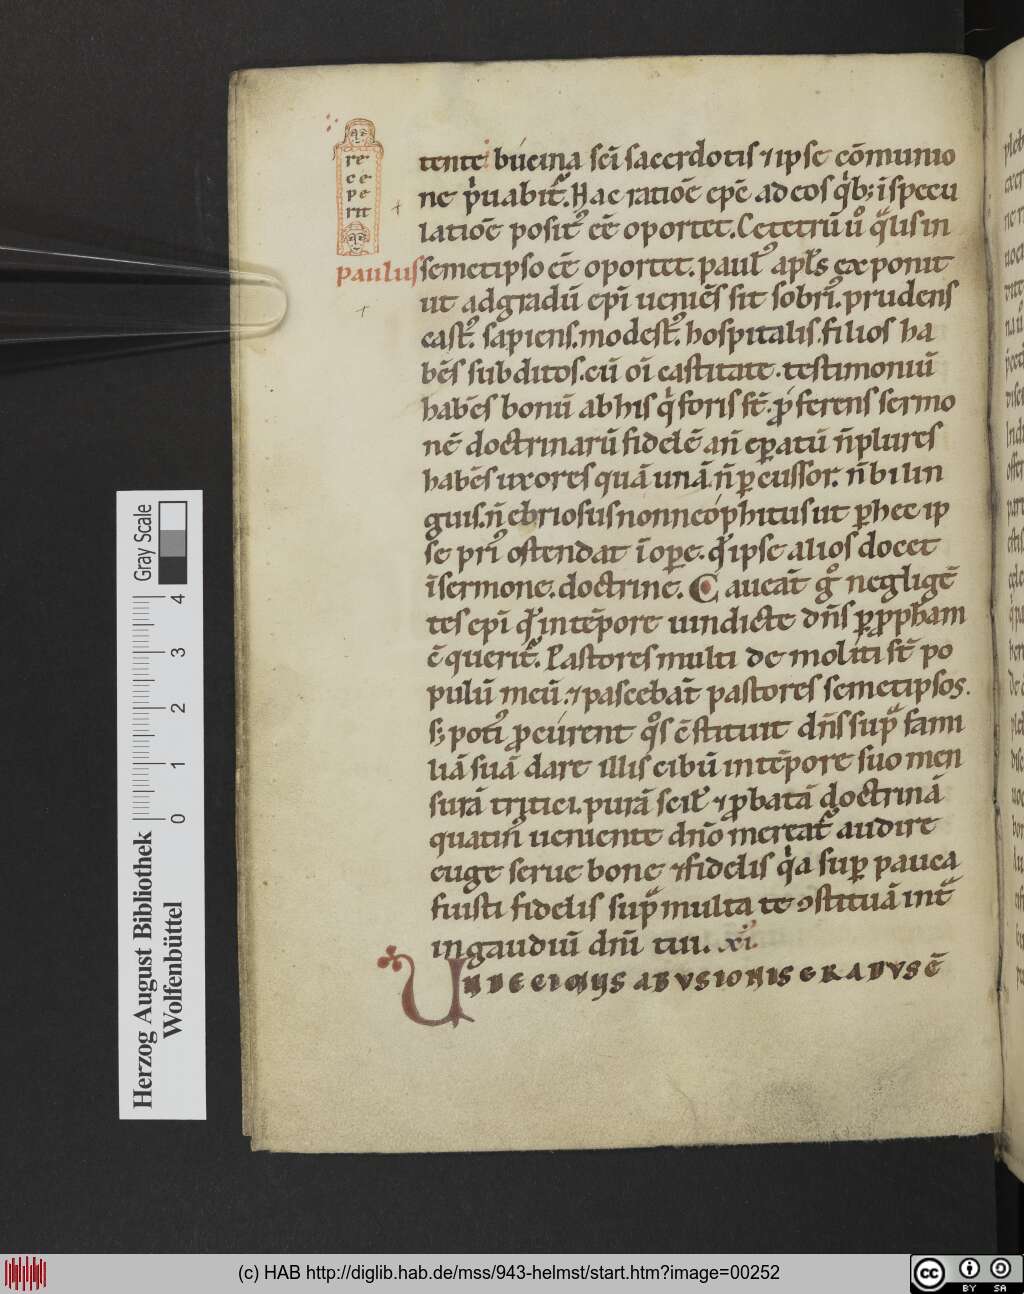 re
ce
pe
rit
tente bucina sci sacerdotis ⁊ ipse cōmunio
ne p̍uabit᷑. Hac ratiōe epē ad eos q̍b; ī specu
latiōe posit᷒ eē oportet. Ceterū u° q̄lis in
paulus
semetipso eē oportet. paul᷒ apl̄s exponit
ut ad gradū epī ueniēs sit sobri᷒. prudens
cast᷒. sapiens. modest᷒. hospitalis. filios ha
bēs subditos. cū oī castitate. testimoniū
habēs bonū ab his q̍ foris st̄. p̄ferens sermo
nē doctrinarū fidelē an̄ epatū n̄ plures
habēs uxores quā unā. n̄ p̱cussor. n̄ bilin
guis. n̄ ebriosus non neophitus ut p̱ hec ip
se pri᷒ ostendat ī ope. qd̓ ipse alios docet
ī sermone. doctrine. Caueāt g° negligē
tes epī qd̓ in tēpore uindicte dn̄s p̱ pp̄ham
ēquerit᷑. Pastores multi demoliti st̄ po
pulū meū. ⁊ pascebāt pastores semetipsos.
s; poti᷒ p̱curent q°s ɔ̄stituit dn̄s sup̱ fami
liā suā dare illis cibū in tēpore suo men
surā tritici. purā scil᷒ ⁊ p̱batā doctrinā
quatin᷒ ueniente dn̄o mereat᷑ audire
euge serue bone ⁊ fidelis q̍a sup̱ pauca
fuisti fidelis sup̱ multa te ɔstituā int̄
in gaudiū dn̄i tui. xi.
UNDECIMUS ABUSIONIS GRADUS Ē
Herzog August Bibliothek
Wolfenbüttel
0 1 2 3 4
Gray Scale
(c) HAB http://diglib.hab.de/mss/943-helmst/start.htm?image=00252
cc BY SA